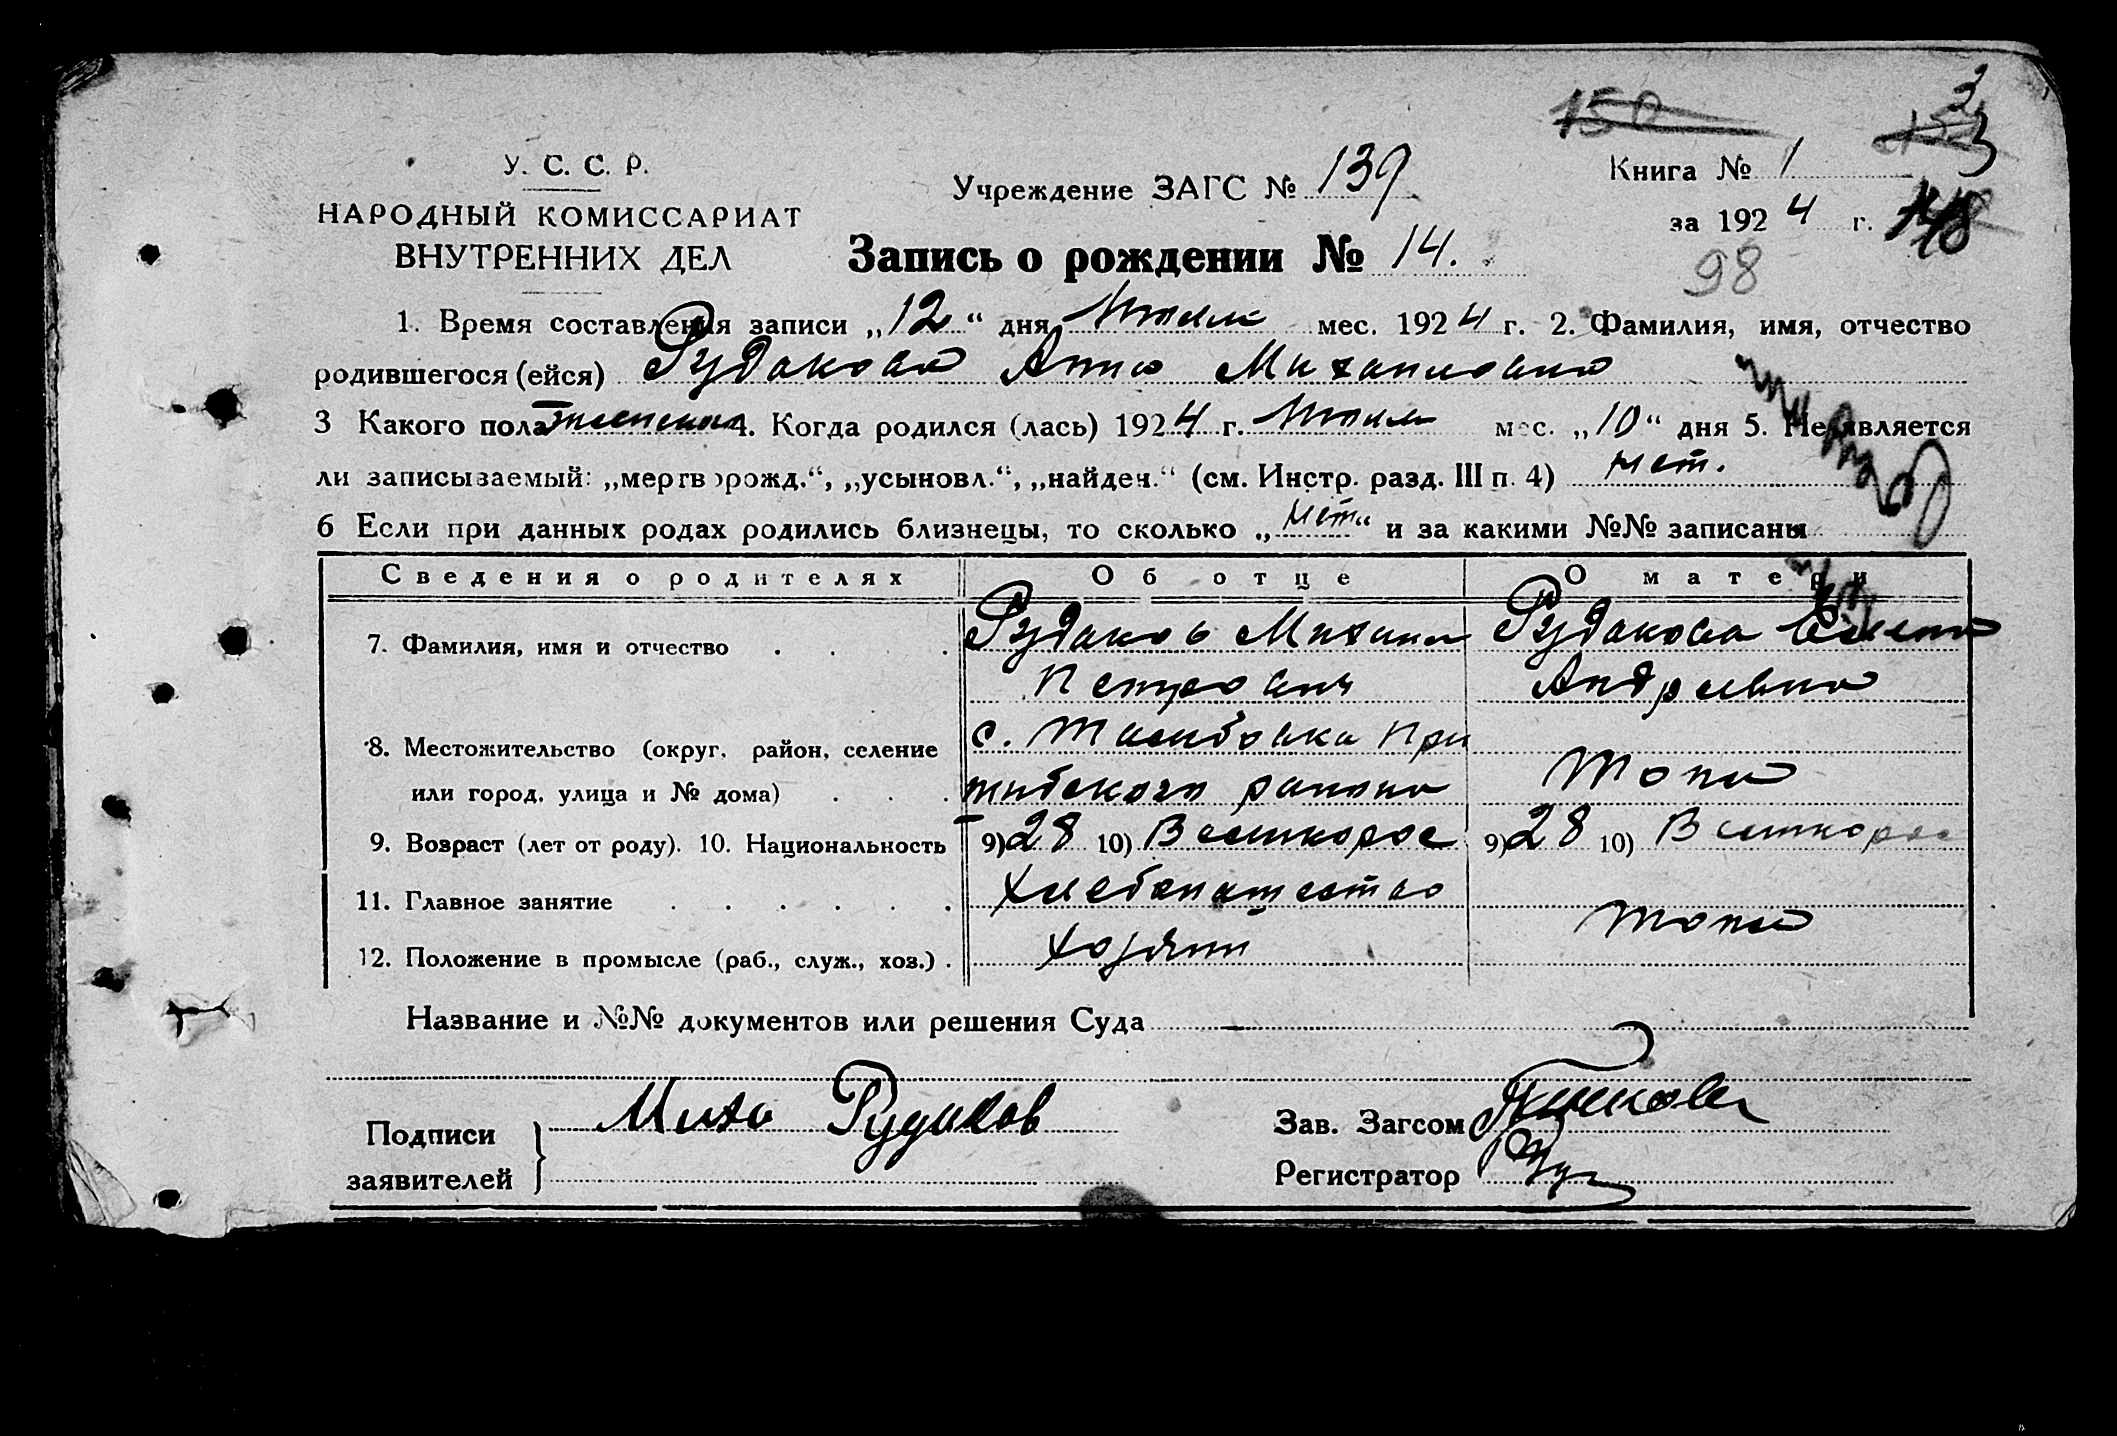 150
3
У. С. С. Р.
Учреждение ЗАГС № 139
Книга № 1
НАРОДНЫЙ КОМИССАРИАТ
за 1924 г. 148
ВНУТРЕННИХ ДЕЛ
Запись о рождении № 14.
98
1. Время составления записи „12“ дня Июля мес. 1924 г. 2. Фамилия, имя, отчество
родившегося (ейся) Рудакова Анна Михайловна
3 Какого пола женского 4. Когда родился (лась) 1924 г. Июля мес. „10“ дня 5. Не является
ли записываемый: „мертворожд.“, „усыновл.“, „найден.“ (см. Инстр. разд. III п. 4) нет.
6 Если при данных родах родились близнецы, то сколько „нет“ и за какими №№ записаны
Сведения о родителях Об отце О матери
7. Фамилия, имя и отчество Рудаков Михаил Рудакова Елена
Петрович Андреевна
8. Местожительство (округ, район, селение с. Тамбовка При
или город, улица и № дома) шибского района Тоже
9. Возраст (лет от роду). 10. Национальность 9) 28 10) Великорос 9) 28 10) Великорос
11. Главное занятие Хлебопашество
12. Положение в промысле (раб., служ., хоз.) Хозяин Тоже
Название и №№ документов или решения Суда
Подписи заявителей Миха Рудаков
Зав. Загсом
Регистратор